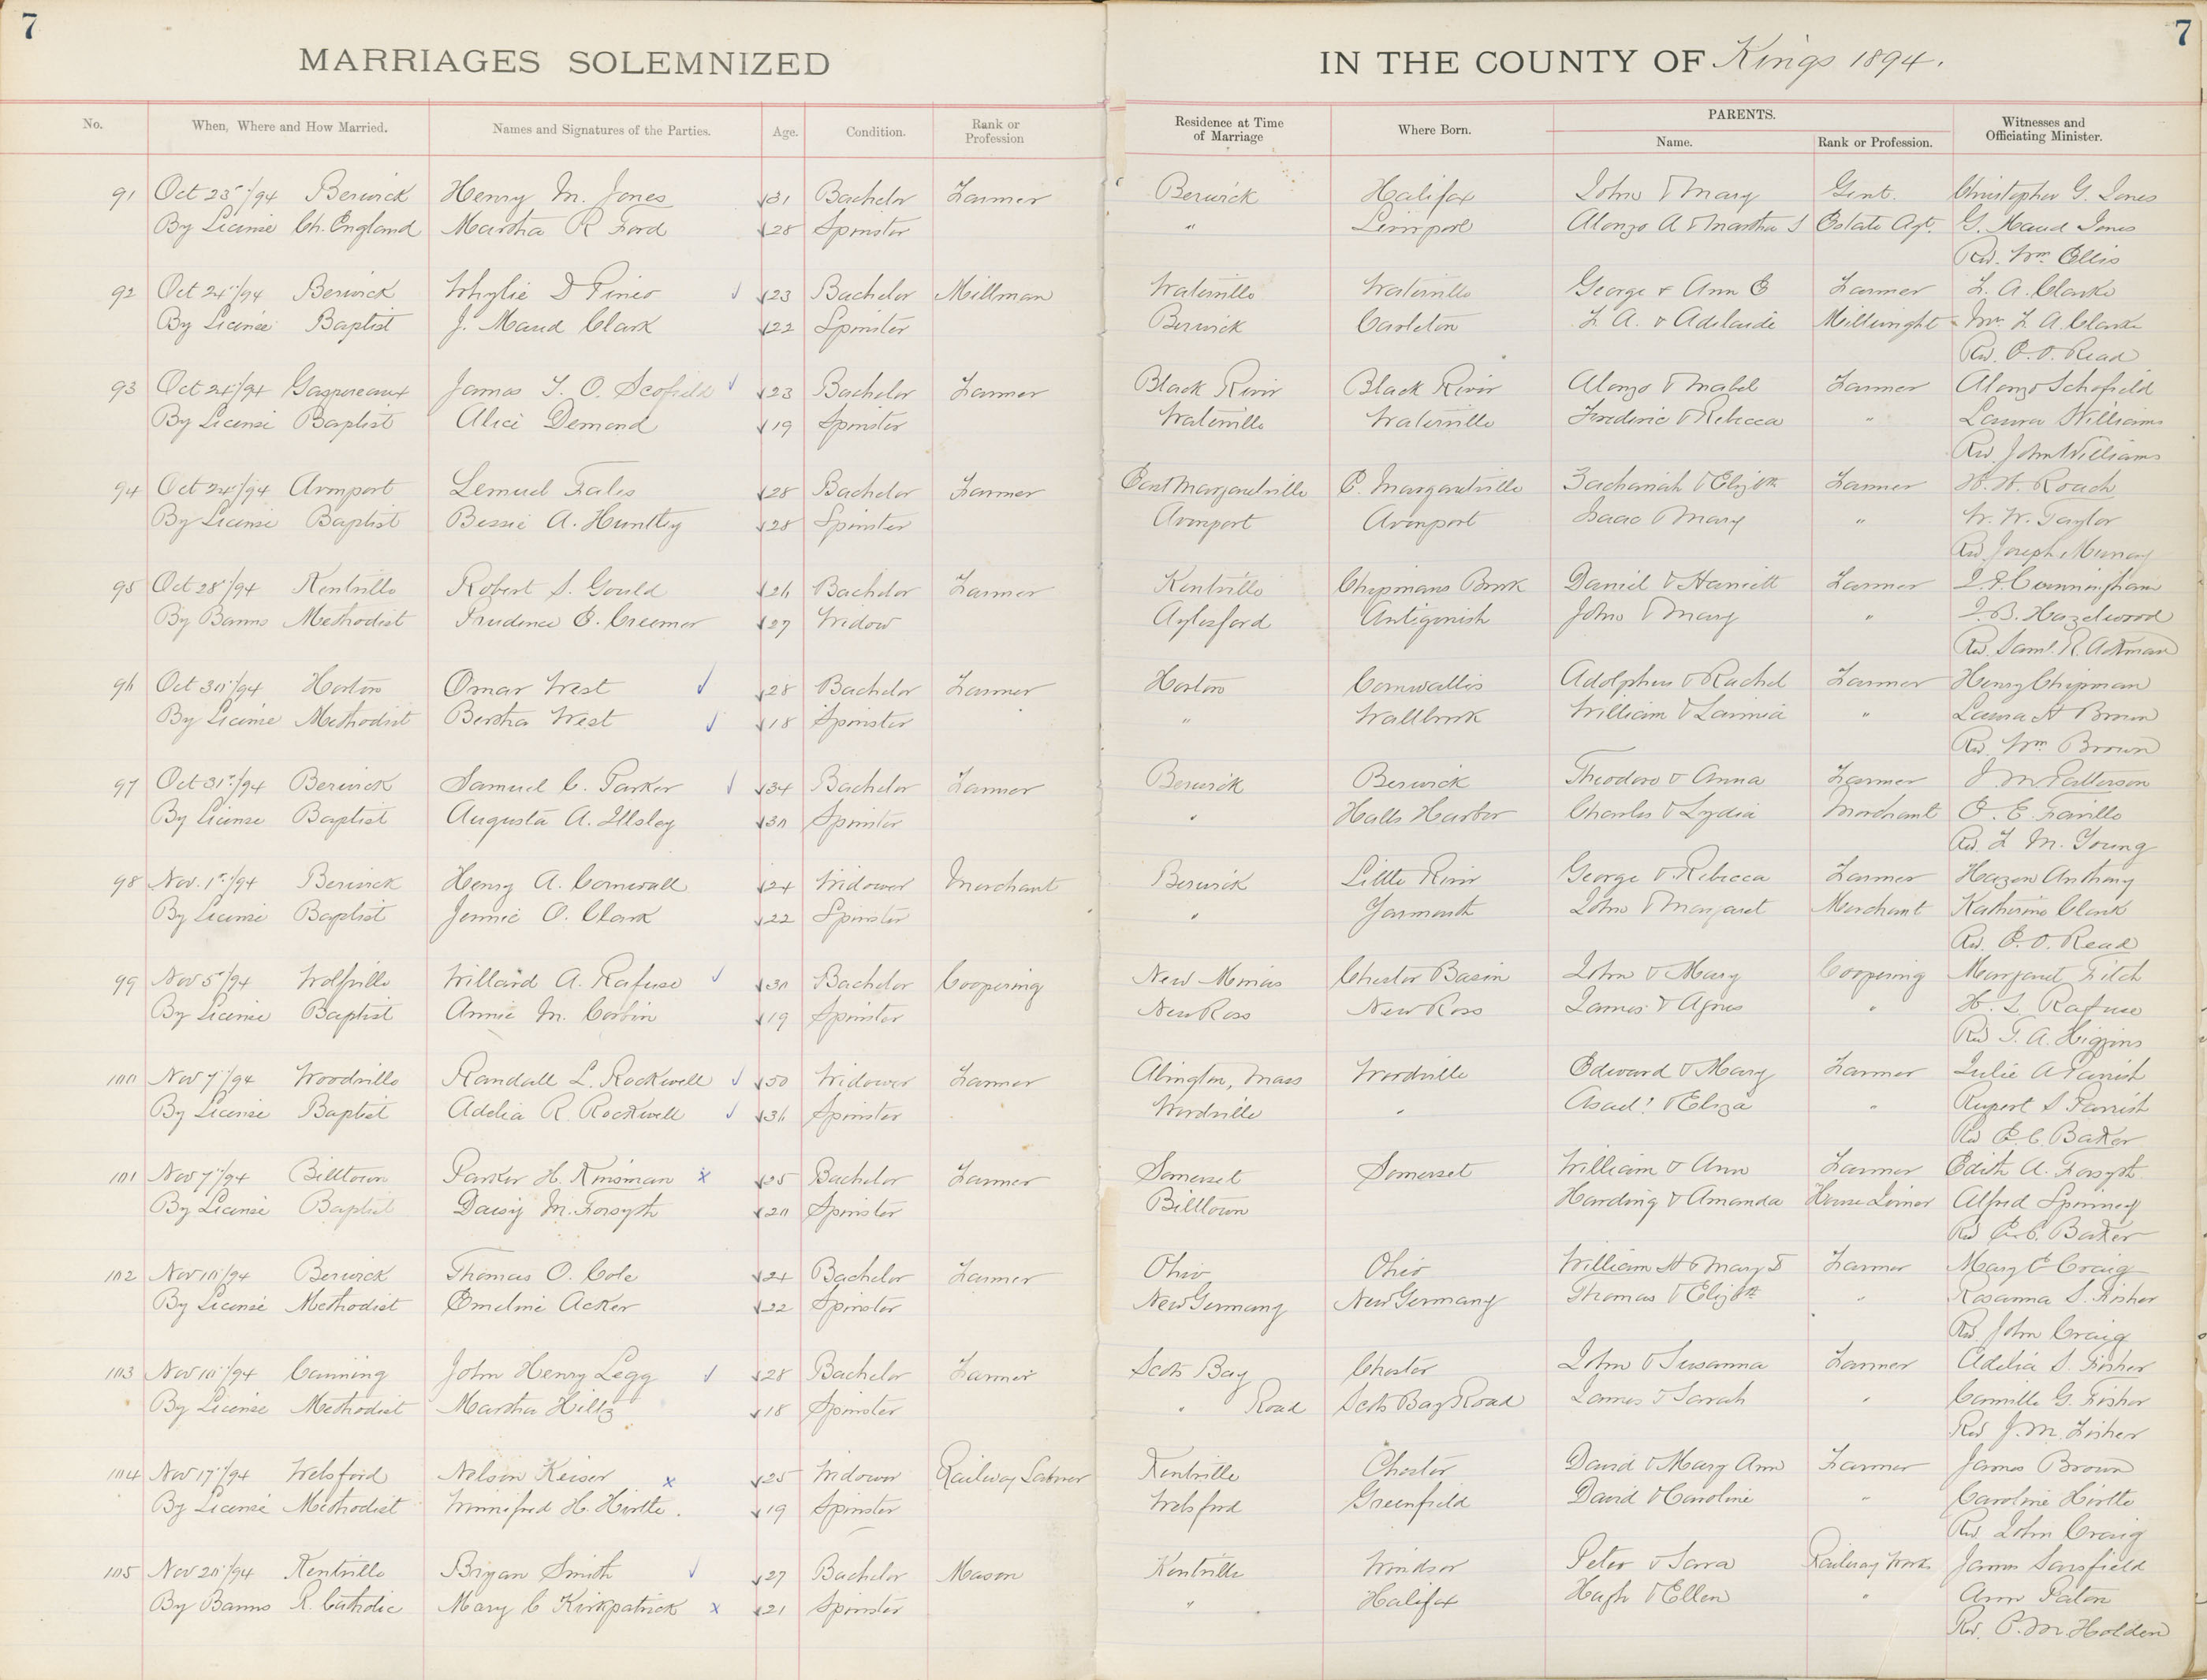 7 7
MARRIAGES SOLEMNIZED IN THE COUNTY OF Kings 1894.
No. When, Where and How Married. Names and Signatures of the Parties. Age. Condition. Rank or Profession Residence at Time of Marriage Where Born. PARENTS. Name. Rank or Profession. Witnesses and Officiating Minister.
91 Oct 23"/94 Berwick Henry M. Jones 31 Bachelor Farmer Berwick Halifax John & Mary Gent. Christopher G. Jones
By License Ch. England Martha R Ford 28 Spinster " Liverpool Alonzo A & Martha S Estate Agt. G. Maud Jones
Rev. Wm Ellis
92 Oct 24"/94 Berwick Whylie D Pineo 23 Bachelor Millman Waterville Waterville George & Ann E Farmer L. A. Clarke
By License Baptist J. Maud Clark 22 Spinster Berwick Carleton L. A. & Adelaide Millwright Mrs L. A. Clarke
Rev. E. O. Read
93 Oct 24"/94 Gaspereaux James T. O. Scofield 23 Bachelor Farmer Black River Black River Alonzo & Mabel Farmer Alonzo Schofield
By License Baptist Alice Demond 19 Spinster Waterville Waterville Frederic & Rebecca " Laura Williams
Rev John Williams
94 Oct 24"/94 Avonport Lemuel Fales 28 Bachelor Farmer East Margaretville E. Margaretville Zachariah & Elizbth Farmer W. W. Roach
By License Baptist Bessie A. Huntley 28 Spinster Avonport Avonport Isaac & Mary " W. W. Taylor
Rev. Joseph Murray
95 Oct 28"/94 Kentville Robert S. Gould 26 Bachelor Farmer Kentville Chipmans Brook Daniel & Harriett Farmer Cunningham
By Banns Methodist Prudence E. Creemer 27 Widow Aylesford Antigonish John & Mary " J. B. Hazelwood
Rev. Saml. R. Ackman
96 Oct 30"/94 Horton Omar West 28 Bachelor Farmer Horton Cornwallis Adolphus & Rachel Farmer Henry Chipman
By License Methodist Bertha West 18 Spinster " Wallbrook William & Lavinia " Laura H Brown
Rev. Wm Brown
97 Oct 31"/94 Berwick Samuel C. Parker 34 Bachelor Farmer Berwick Berwick Theodore & Anna Farmer J M. Patterson
By License Baptist Augusta A. Illsley 30 Spinster " Halls Harbor Charles & Lydia Merchant
Rev. L M. Young
98 Nov. 1st/94 Berwick Henry A. Cornwall 24 Widower Merchant Berwick Little River George & Rebecca Farmer Hazen Anthony
By License Baptist Jennie O. Clark 22 Spinster " Yarmouth John & Margaret Merchant Katherine Clark
Rev. E. O. Read
99 Nov 5"/94 Wolfville Willard A. Rafuse 30 Bachelor Coopering New Minas Chester Basin John & Mary Coopering Margaret Fitch
By License Baptist Annie M. Corbin 19 Spinster New Ross New Ross James & Agnes " H. L. Rafuse
Rev T. A. Higgins
100 Nov 7"/94 Woodville Randall L. Rockwell 50 Widower Farmer Abington, Mass Woodville Edward & Mary Farmer Julie A Parrish
By License Baptist Adelia R. Rockwell 36 Spinster Woodville " Asael & Eliza " Rupert S Parrish
Rev E. C. Baker
101 Nov 7"/94 Billtown Parker H. Kinsman 25 Bachelor Farmer Somerset Somerset William & Ann Farmer Edith A. Forsyth
By License Baptist Daisy M. Forsyth 20 Spinster Billtown Harding & Amanda House Joiner Alfred Spinney
Rev E. C. Baker
102 Nov 10"/94 Berwick Thomas O. Cole 24 Bachelor Farmer Ohio Ohio William H & Mary S Farmer Mary E Craig
By License Methodist Emeline Acker 22 Spinster New Germany New Germany Thomas & Elizbth " Rosanna S. Fisher
Rev. John Craig
103 Nov 10"/94 Canning John Henry Legg 28 Bachelor Farmer Scots Bay Chester John & Susanna Farmer Adelia S. Fisher
By License Methodist Martha Hiltz 18 Spinster " Road Scots Bay Road James & Sarah " Camille G. Fisher
Rev J. M. Fisher
104 Nov 17"/94 Welsford Nelson Keiser 25 Widower Railway Laborer Kentville Chester David & Mary Ann Farmer James Brown
By License Methodist Winnifred H. Hirtle. 19 Spinster Welsford Greenfield David & Caroline " Caroline Hirtle
Rev. John Craig
105 Nov 20"/94 Kentville Bryan Smith 27 Bachelor Mason Kentville Windsor Peter & Sara Railway Work James Sarsfield
By Banns R. Catholic Mary C Kirkpatrick 21 Spinster " Halifax Hugh & Ellen " Ann Paton
Rev. P. M. Holden